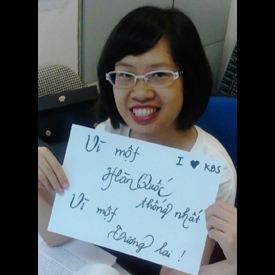 Vì một I ♥ KBS
Hàn Quốc
thống nhất
Vì một
Tương lai !